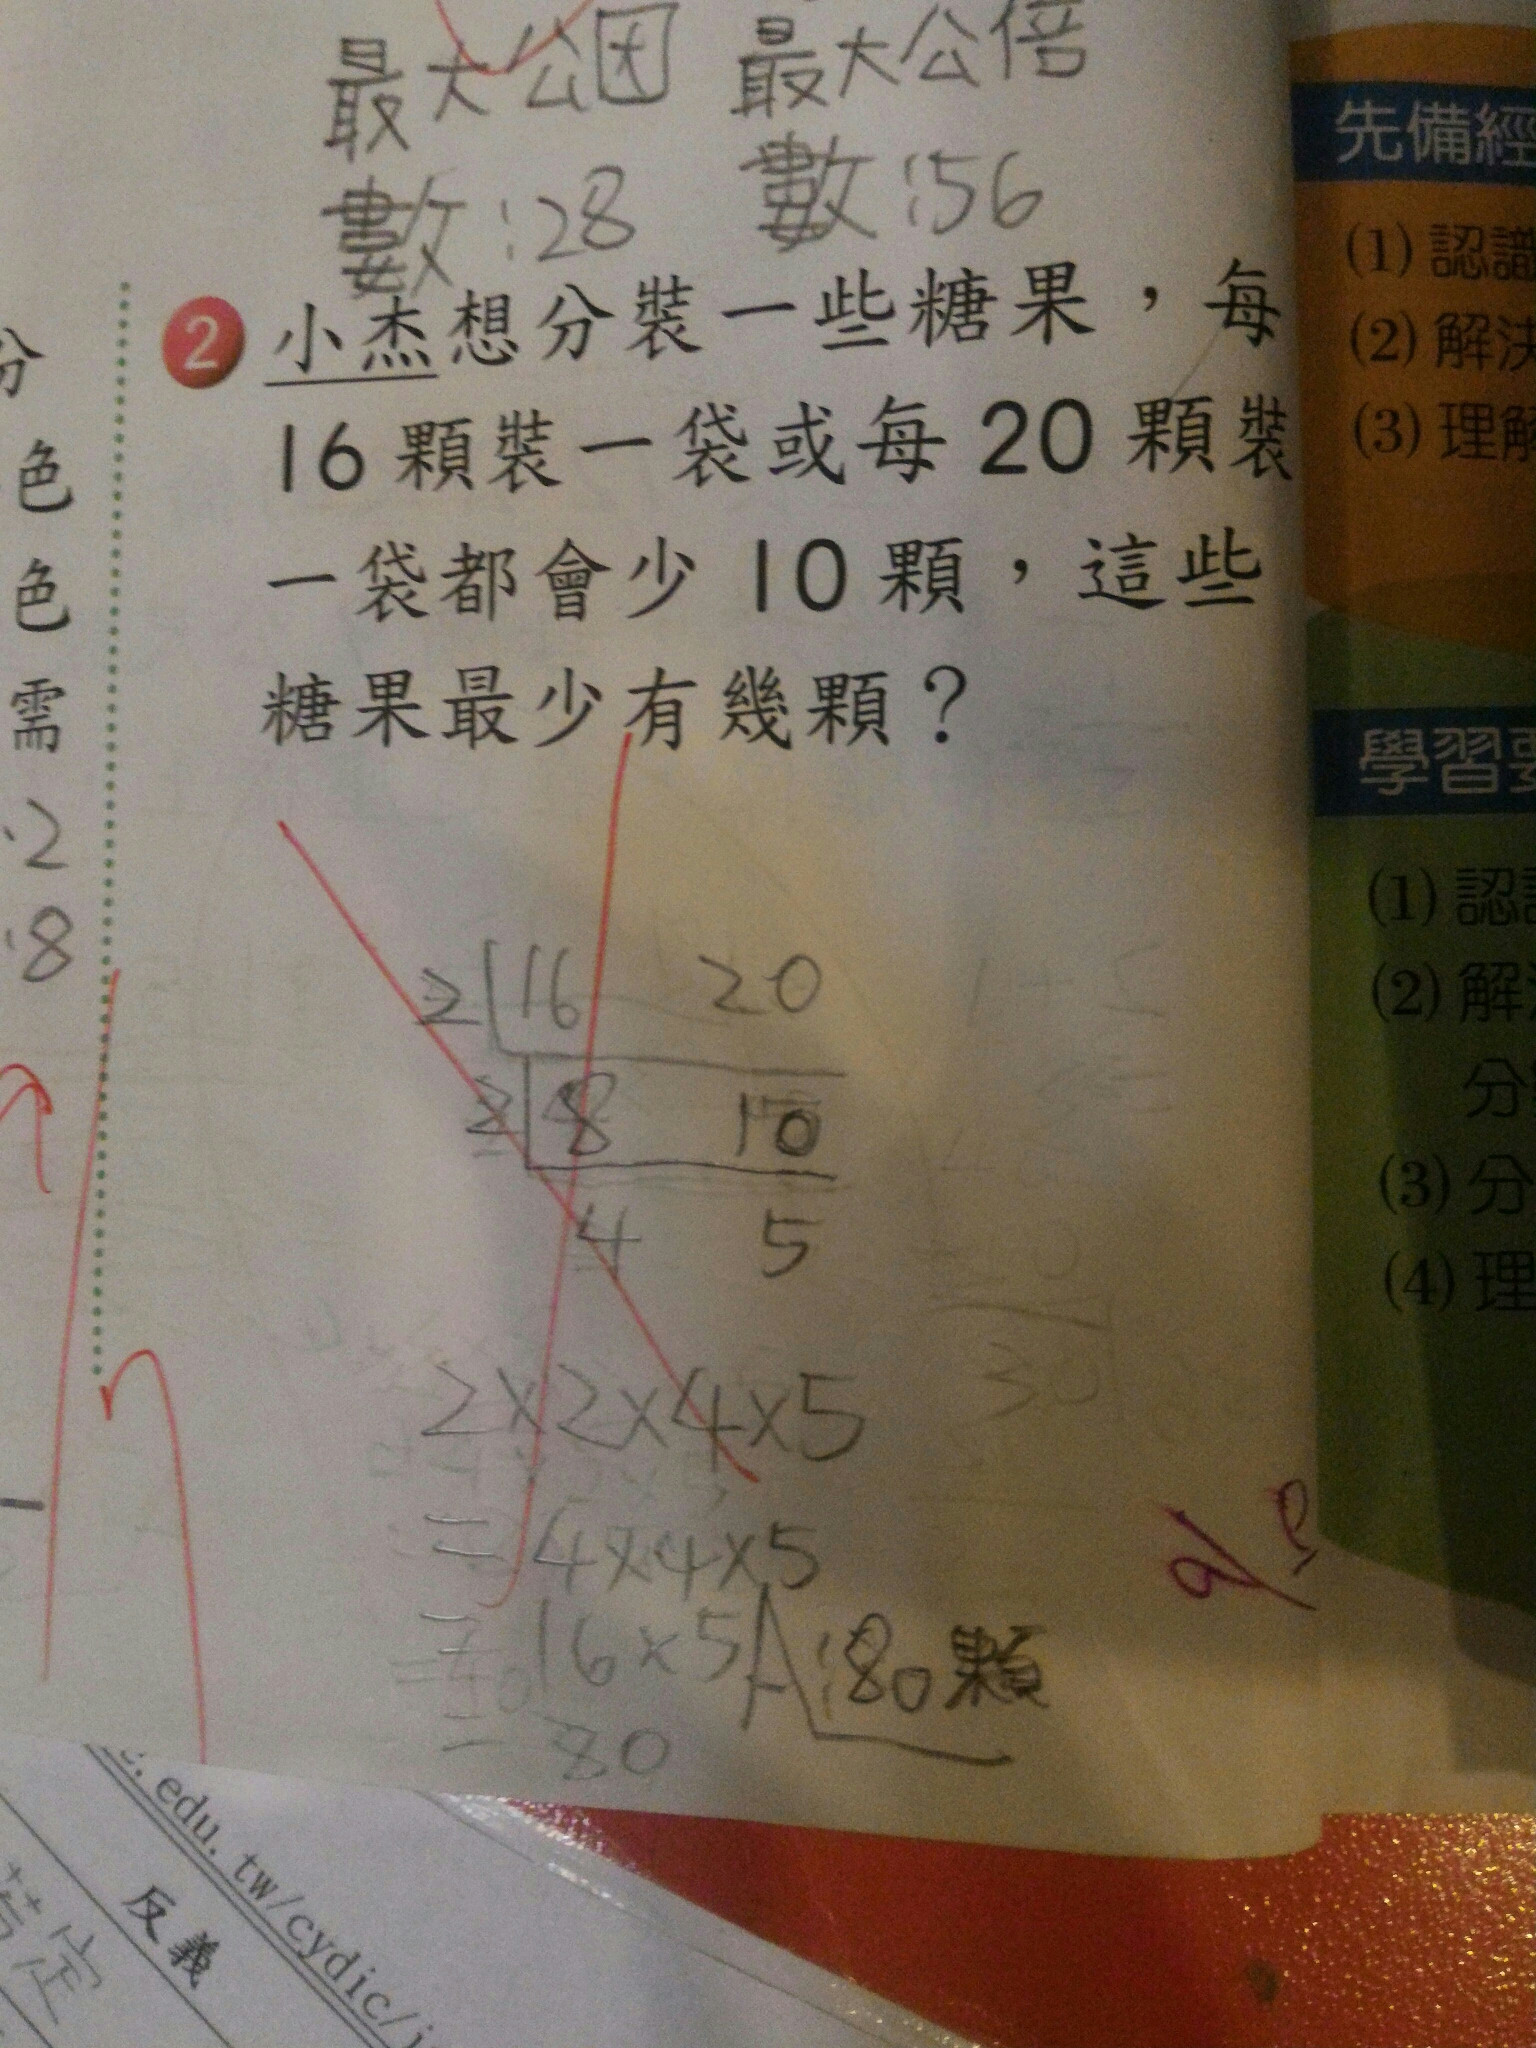 最大公因
數:28
最大公倍
數:56
2 小杰想分裝一些糖果，每
16 顆裝一袋或每 20 顆裝
一袋都會少 10 顆，這些
糖果最少有幾顆？
2 16 20
2 8 10
4 5
2×2×4×5
= 4×4×5
= 16×5
= 80
A:80顆
30
份
色
色
需
.2
:8
先備經
(1) 認識
(2) 解決
(3) 理解
學習要
(1) 認
(2) 解
分
(3) 分
(4) 理
.edu.tw/cydic/
反義